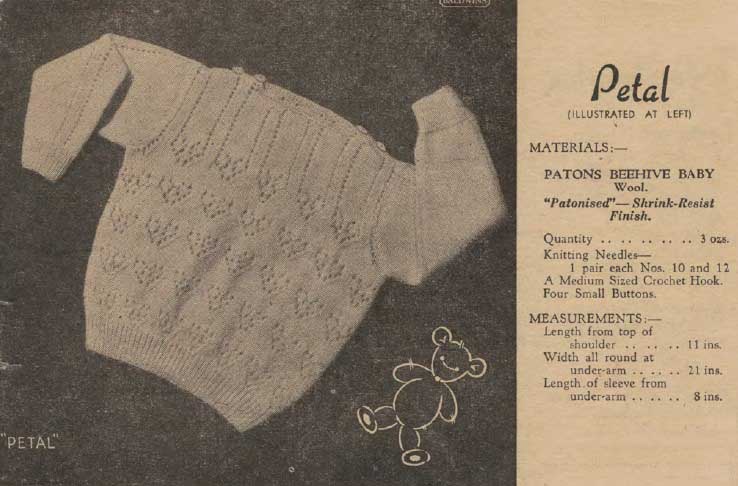 BALDWINS
"PETAL"
Petal
(ILLUSTRATED AT LEFT)
MATERIALS:—
PATONS BEEHIVE BABY
Wool.
"Patonised"—Shrink-Resist
Finish.
Quantity .. .. .. .. .. 3 ozs.
Knitting Needles—
1 pair each Nos. 10 and 12
A Medium Sized Crochet Hook.
Four Small Buttons.
MEASUREMENTS:—
Length from top of
shoulder .. .. .. 11 ins.
Width all round at
under-arm .. .. .. 21 ins.
Length of sleeve from
under-arm .. .. .. 8 ins.